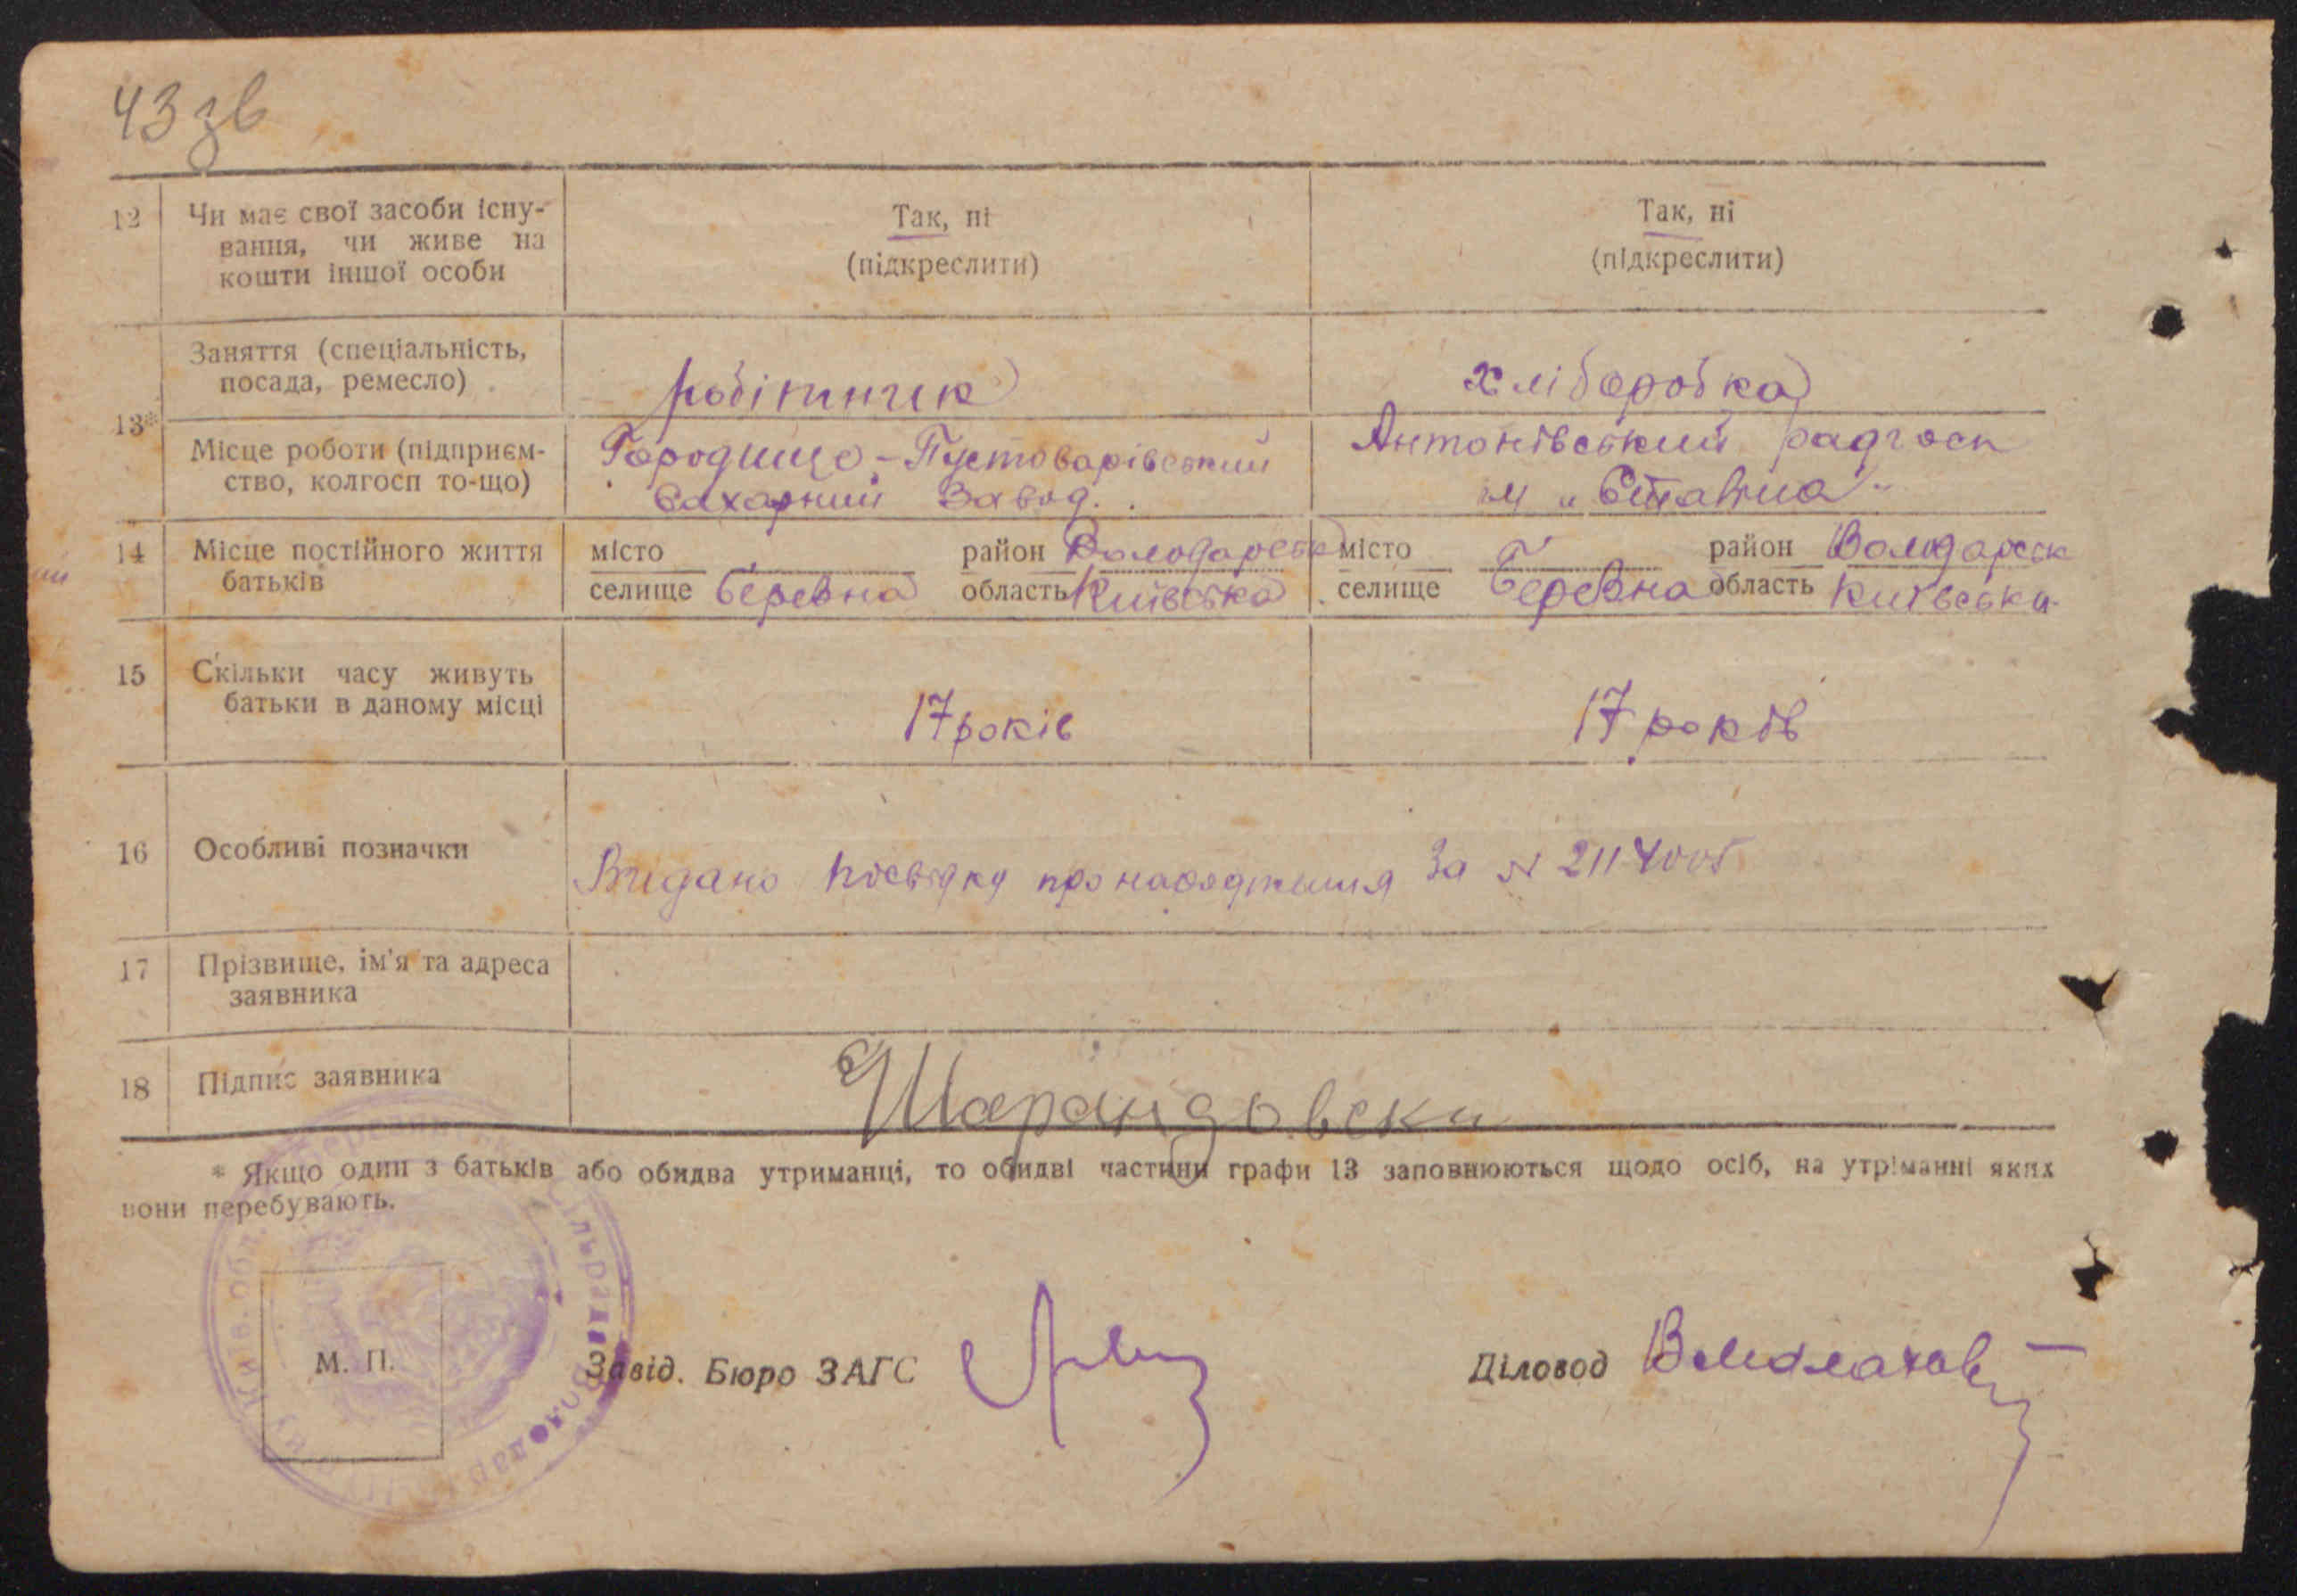 43 зв
12 Чи має свої засоби існу-
вання, чи живе на
кошти іншої особи
Так, ні
(підкреслити)
Так, ні
(підкреслити)
13*
Заняття (спеціальність,
посада, ремесло)
робітник
хліборобка
Місце роботи (підприєм-
ство, колгосп то-що)
Городище-Пустоварівський
Сахарний Завод.
Антонівський радгосп
14 Місце постійного життя
батьків
місто район Володарськ
селище Беревна область Київська
місто район Володарськ
селище Беревна область Київська
15 Скільки часу живуть
батьки в даному місці
17 років
17 років
16 Особливі позначки
Видано посвідку про народження За №
17 Прізвище, ім'я та адреса
заявника
18 Підпис заявника
* Якщо один з батьків або обидва утриманці, то обидві частини графи 13 заповнюються щодо осіб, на утріманні яких
вони перебувають.
М. П.
Завід. Бюро ЗАГС
Діловод